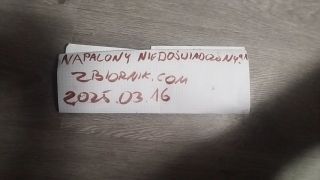 NAPALONY NIEDOŚWIADCZONY
ZBIORNIK.COM
2025.03.16